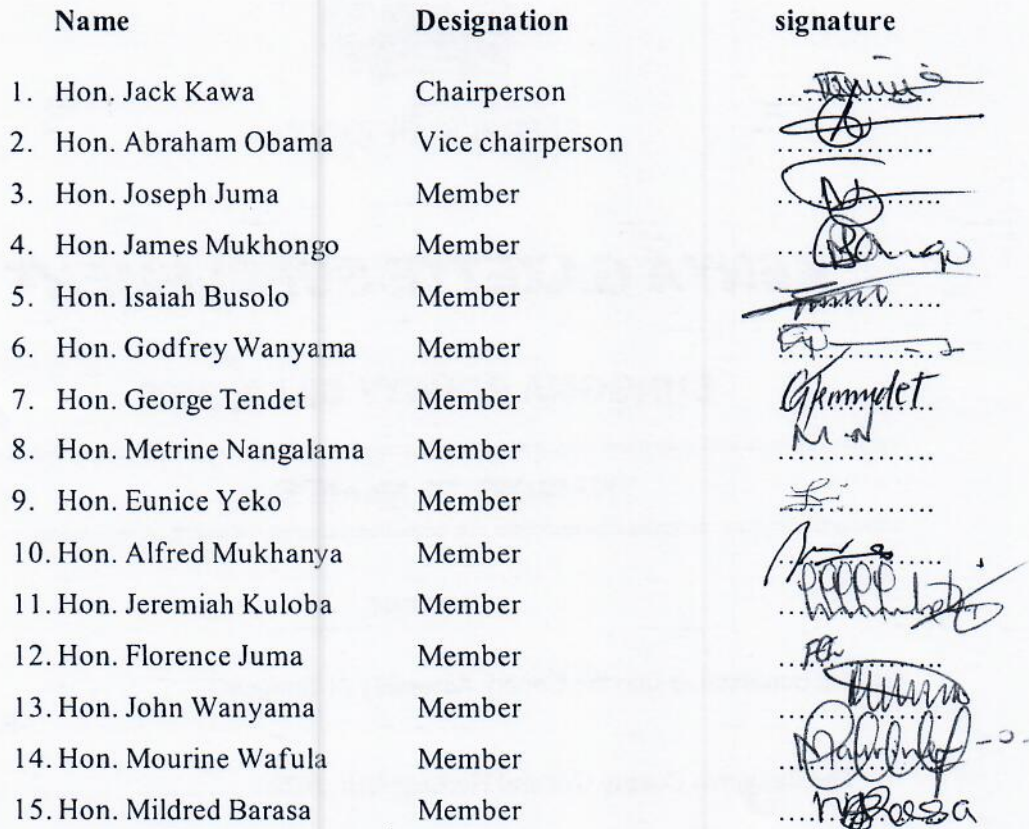 Name Designation signature
1. Hon. Jack Kawa Chairperson
2. Hon. Abraham Obama Vice chairperson
3. Hon. Joseph Juma Member
4. Hon. James Mukhongo Member
5. Hon. Isaiah Busolo Member
6. Hon. Godfrey Wanyama Member
7. Hon. George Tendet Member
8. Hon. Metrine Nangalama Member M.N
9. Hon. Eunice Yeko Member
10. Hon. Alfred Mukhanya Member
11. Hon. Jeremiah Kuloba Member
12. Hon. Florence Juma Member
13. Hon. John Wanyama Member
14. Hon. Mourine Wafula Member
15. Hon. Mildred Barasa Member